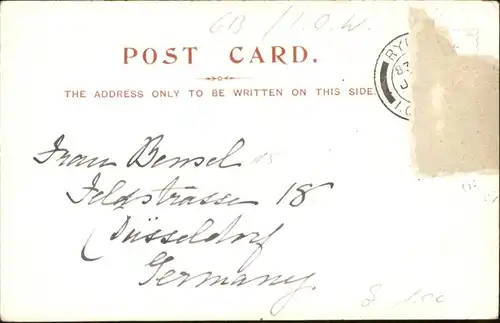 GB / I.O.W.
POST CARD.
THE ADDRESS ONLY TO BE WRITTEN ON THIS SIDE.
RY
Frau Bensel
Feldstrasse 18
Düsseldorf
Germany